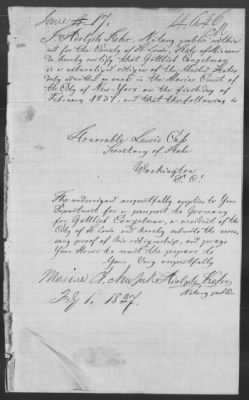 June 17. 4646
I Adolph Kehr, Notary public within
and for the County of St Louis, State of Missouri
do hereby certify that Gottlieb Conzelman
is a naturalized citizen of the United States
duly admitted so once in the Marine Court of
the City of New York on the first day of
February 1837, and that the following is
Honorably Lewis Cass
Secretary of State
Washington
D. C.
The undersigned respectfully applies to Your
Department for a passport to Germany
for Gottlieb Conzelman, a resident of the
City of St Louis and hereby submits the necess-
ary proof of his citizenship, and prays
Your Honor to remit the papers to
Yours Very respectfully
Marine Ct. New York Adolph Kehr
Feby 1. 1837. Notary public